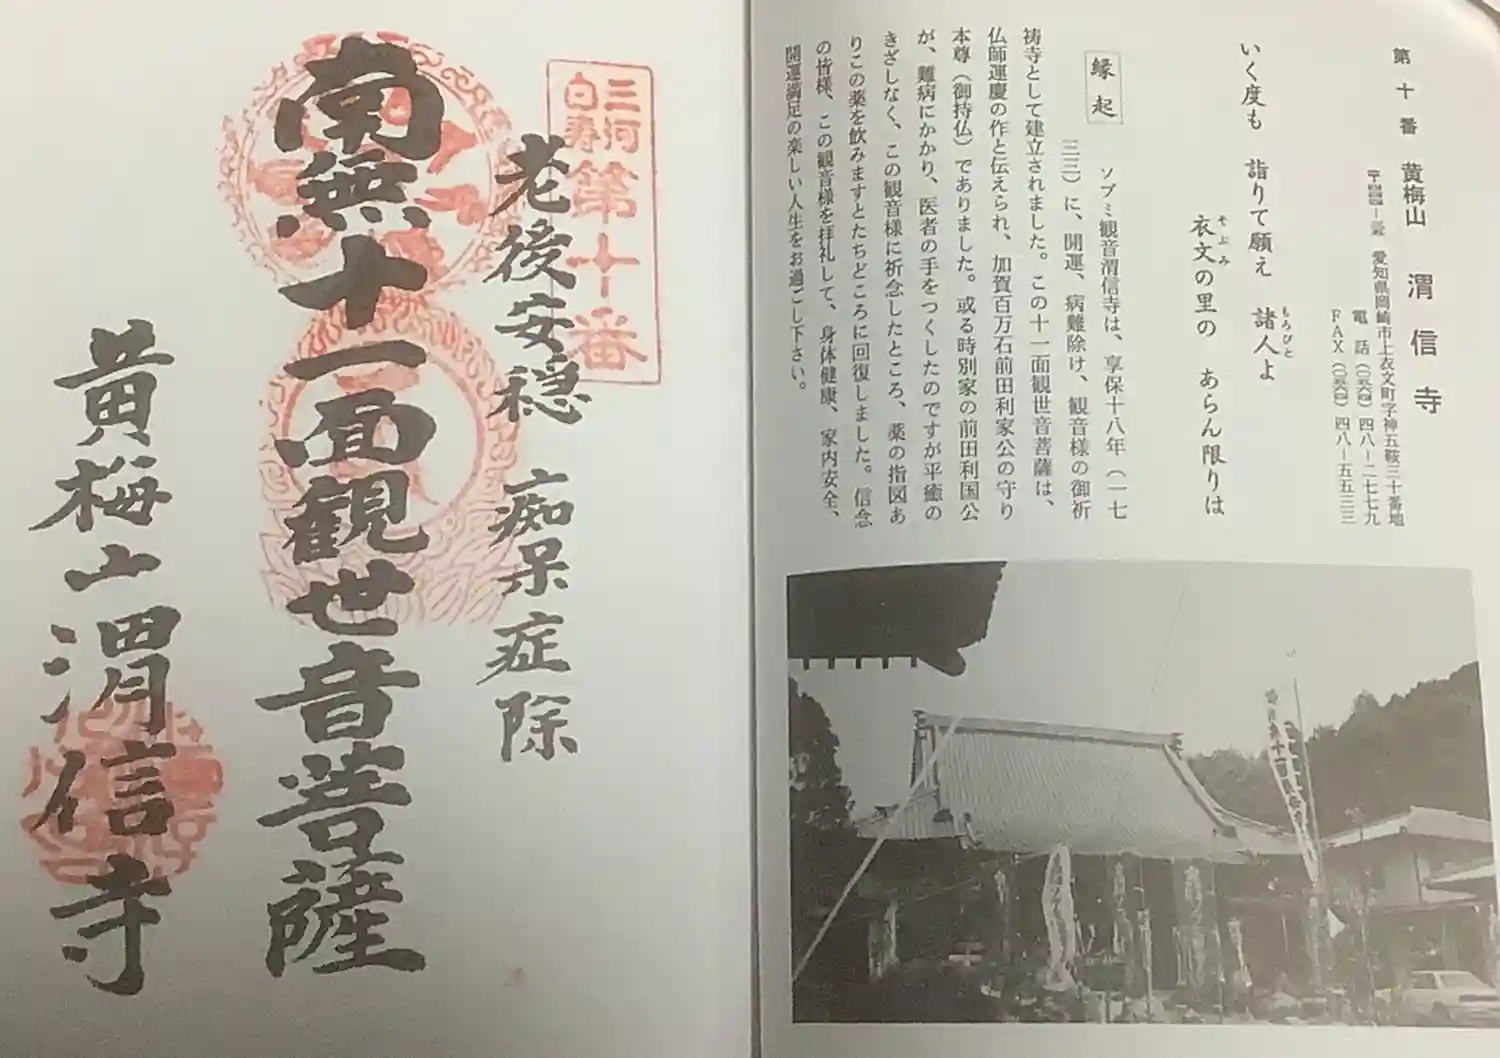 第十番 黄梅山 渭信寺
愛知県岡崎市上衣文町字神五鞍三十番地
電話(〇五六四)四八ー二七七九
FAX(〇五六四)四八ー五五三三
いく度も 詣りて願え 諸人よ
もろびと
衣文の里の あらん限りは
そぶみ
縁起
ソブミ観音渭信寺は、享保十八年(一七
三三)に、開運、病難除け、観音様の御祈
祷寺として建立されました。この十一面観世音菩薩は、
仏師運慶の作と伝えられ、加賀百万石前田利家公の守り
本尊(御持仏)でありました。或る時別家の前田利国公
が、難病にかかり、医者の手をつくしたのですが平癒の
きざしなく、この観音様に祈念したところ、薬の指図あ
りこの薬を飲みますとたちどころに回復しました。信念
の皆様、この観音様を拝礼して、身体健康、家内安全、
開運満足の楽しい人生をお過ごし下さい。
三河
白寿
第十番
老後安穏 痴呆症除
南無十一面観世音菩薩
黄梅山渭信寺